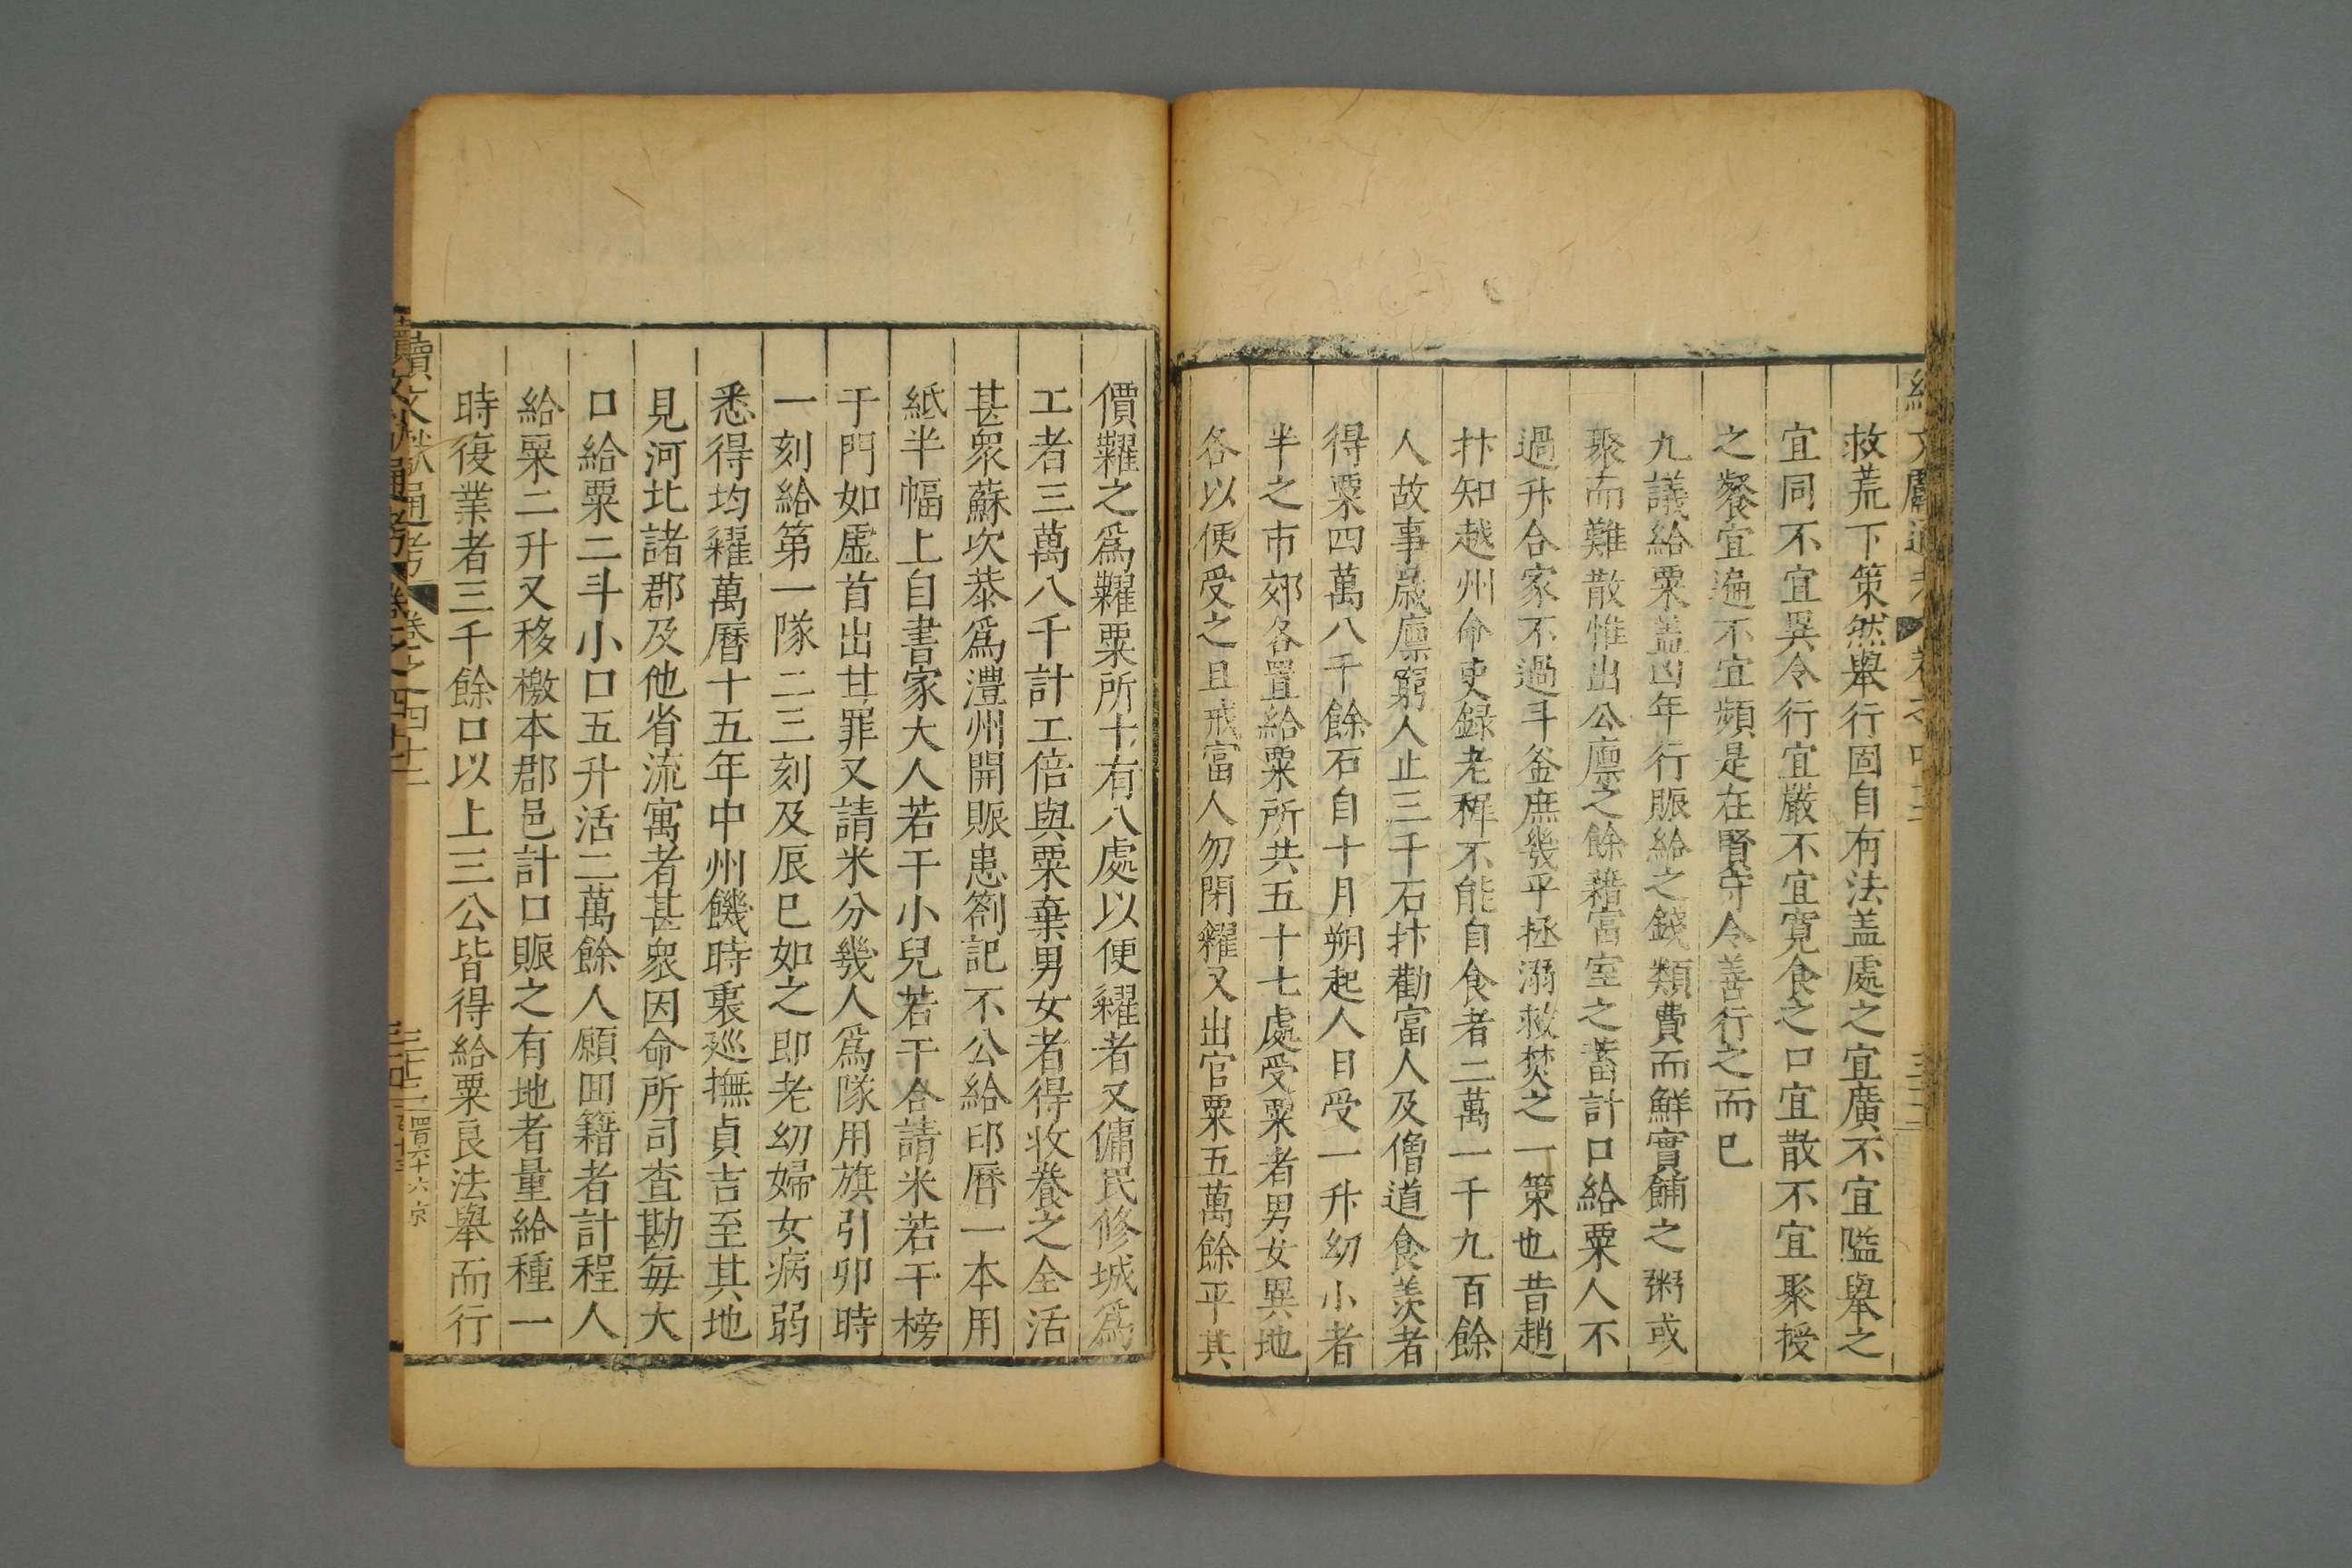 救荒下策然舉行固自有法盖處之宜廣不宜隘舉之
宜同不宜異令行宜嚴不宜寛食之口宜散不宜聚授
之餐宜遍不宜頻是在賢守令善行之而已
九議給粟盖凶年行賑給之錢類費而鮮實餔之粥或
聚而難散惟出公廪之餘藉富室之蓄計口給粟人不
過升合家不過斗釜庶幾乎拯溺救焚之一策也昔趙
抃知越州命吏録老稺不能自食者二萬一千九百餘
人故事歲廪窮人止三千石抃勸富人及僧道食羡者
得粟四萬八千餘石自十月朔起人日受一升幼小者
半之市郊各置給粟所共五十七處受粟者男女異地
各以便受之且戒富人勿閉糴又出官粟五萬餘平其
價糶之爲糶粟所十有八處以便糴者又傭民修城爲
工者三萬八千計工倍與粟棄男女者得收養之全活
甚衆蘇次恭爲澧州開賑患劄記不公給印曆一本用
紙半幅上自書家大人若干小兒若干合請米若干榜
于門如虛首出甘罪又請米分幾人爲隊用旗引卯時
一刻給第一隊二三刻及辰巳如之即老幼婦女病弱
悉得均糴萬曆十五年中州饑時衷廵撫貞吉至其地
見河北諸郡及他省流寓者甚衆因命所司查勘每大
口給粟二斗小口五升活二萬餘人願回籍者計程人
給粟二升又移檄本郡邑計口賑之有地者量給種一
時復業者三千餘口以上三公皆得給粟良法舉而行
續文獻通考 卷之四十二
三十三